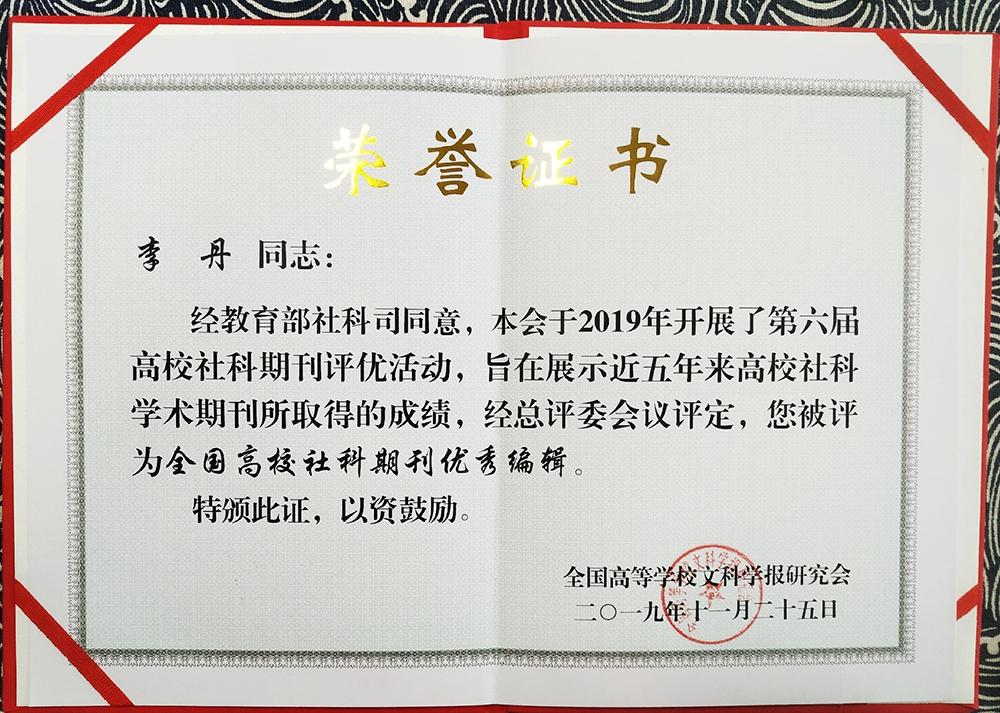 荣誉证书
李 丹 同志：
经教育部社科司同意，本会于2019年开展了第六届
高校社科期刊评优活动，旨在展示近五年来高校社科
学术期刊所取得的成绩，经总评委会议评定，您被评
为全国高校社科期刊优秀编辑。
特颁此证，以资鼓励。
全国高等学校文科学报研究会
二〇一九年十一月二十五日